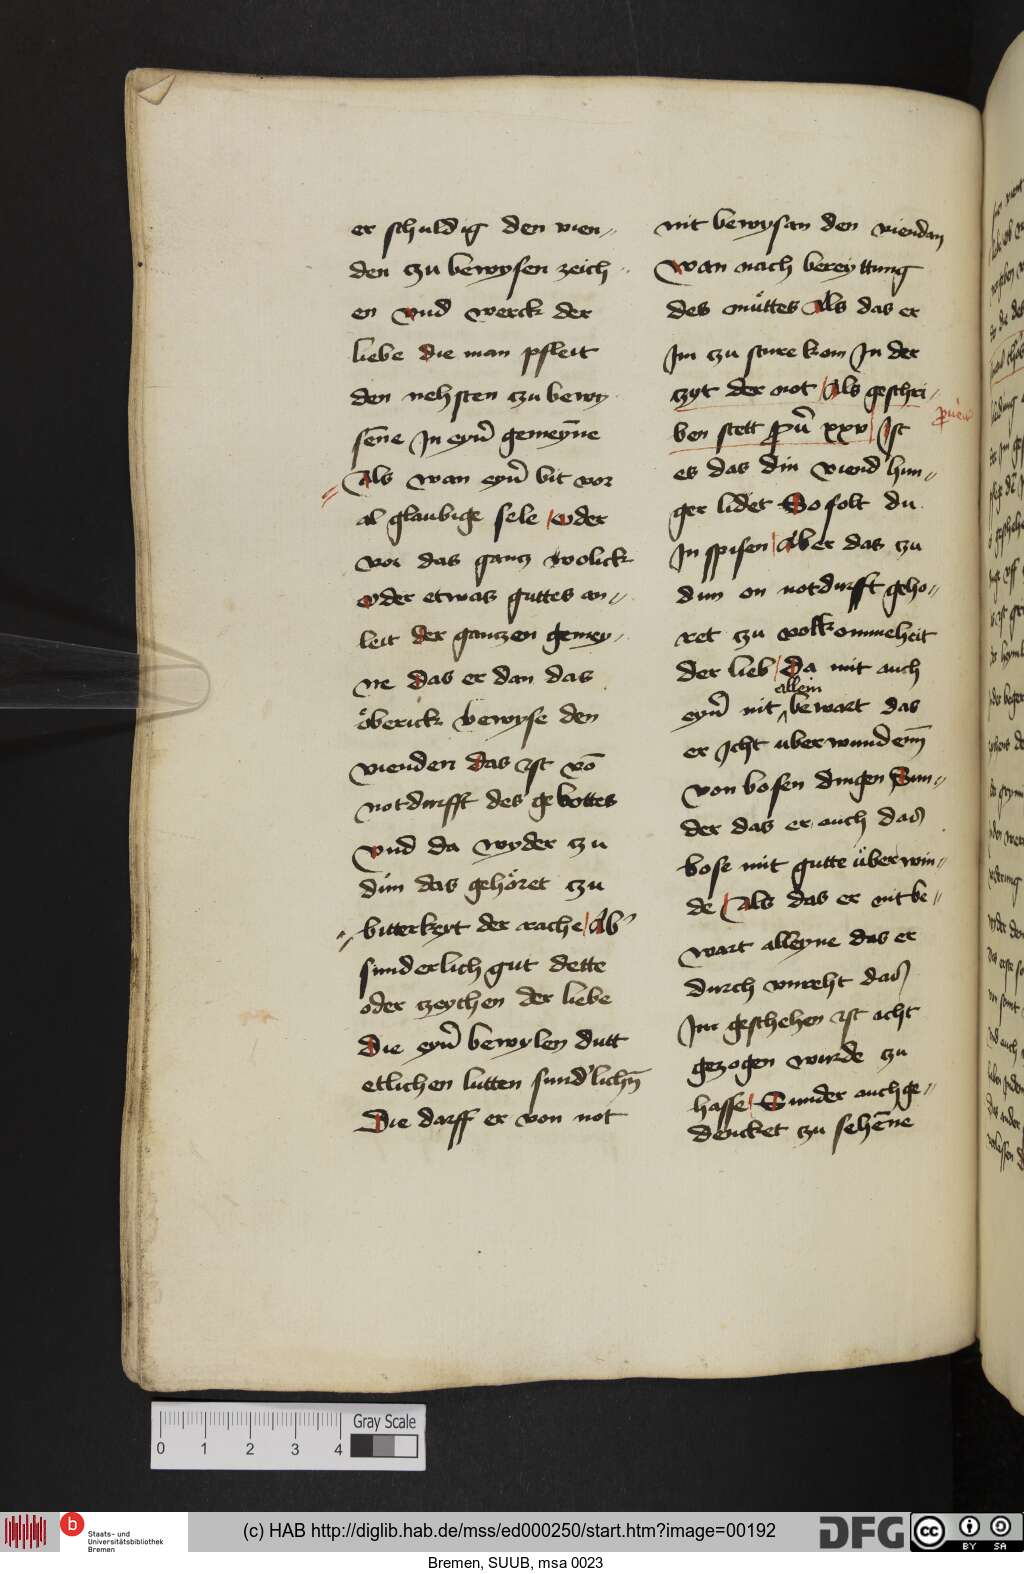 er schuldig den vien〃
den czu bewysen zeich〃
en vnd werck der
liebe die man pfleit
den nehsten czu bewy
sēne Jn eyn͛ gemeyne
Als wan eyn͛ bit vor
al glaubige sele / oder
vor das gancz wolick
oder etwas guttes an〃
leit der ganczen gemey〃
ne das er dan das
oͤberick bewyse den
vienden das ist vō
notdurfft des gebottes
vnd da wyder zu
dún das gehoͤret czu
bitterkeyt der rache / Ab͛
sunderlich gut dette
oder czeychen der liebe
die eyn͛ bewylen dutt
etlichen lutten sund͛lichn̄
Die darff er von not
nit bewysan den viendan
wan nach bereyttung
des muͤttes Als das er
Jm zu sture kom Jn der
czyt der not / Als geschri〃
ben stett pu͛ xxv / Jst
es das din viend hun〃
ger lidet So solt du
Jn spisen / Aber das zu
dun on notdurfft geho〃
ret zu volkommeheit
der lieb / da mit auch
allein
eyn͛ nit bewart das
er Jcht uberwundenn̄
von bosen dingen Sun〃
der das er auch das
bose mit gutte uͤberwin〃
de / Als das er nit be〃
wart alleyne das er
durch vnreht das
Jm geschehen ist acht
gezogen wurde zu
hasse / Sunder auch ge〃
dencket zu sehēne
0 1 2 3 4
Gray Scale
Staats- und
Universitätsbibliothek
Bremen
(c) HAB http://diglib.hab.de/mss/ed000250/start.htm?image=00192
DFG
cc BY SA
Bremen, SUUB, msa 0023